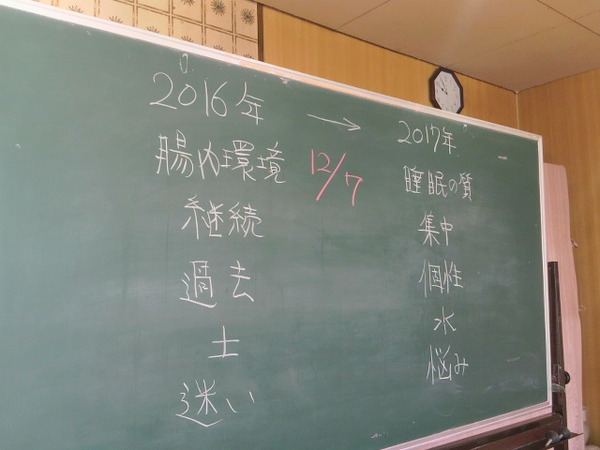 2016年 → 2017年
腸内環境
継続
過去
土
迷い
12/7
睡眠の質
集中
個性
水
悩み